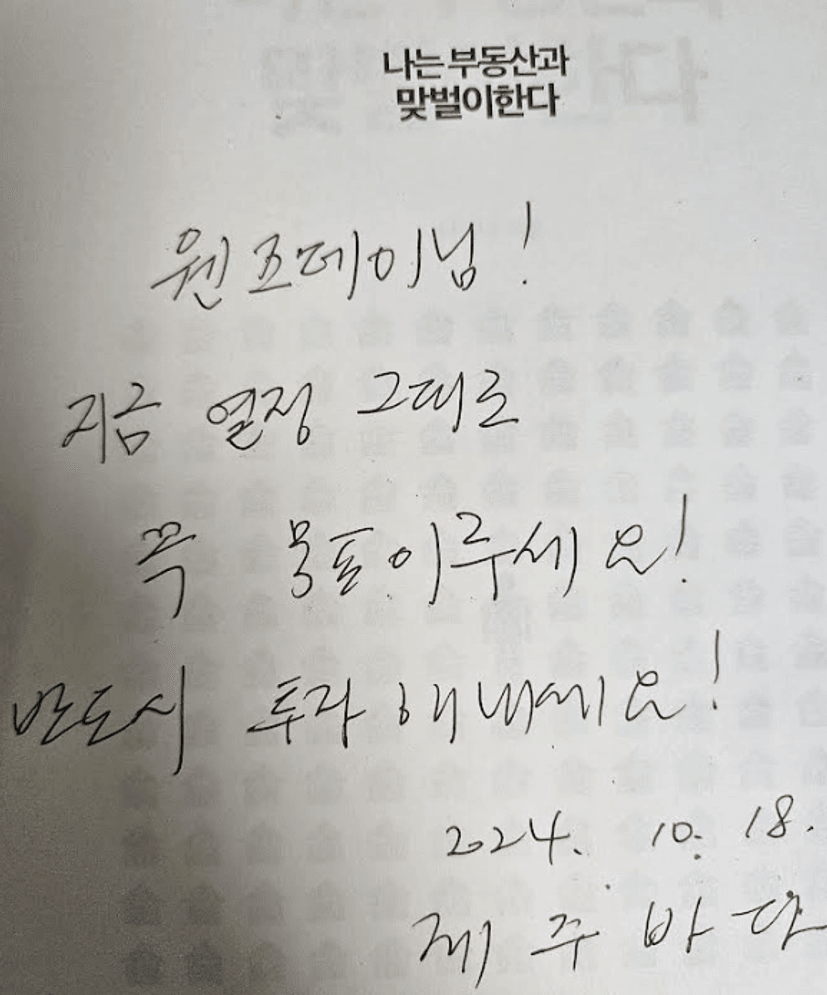 나는 부동산과
맞벌이한다
원조데이님!
지금 열정 그대로
꼭 목표이루세요!
반드시 투자 해내세요!
2024. 10. 18.
제주바다